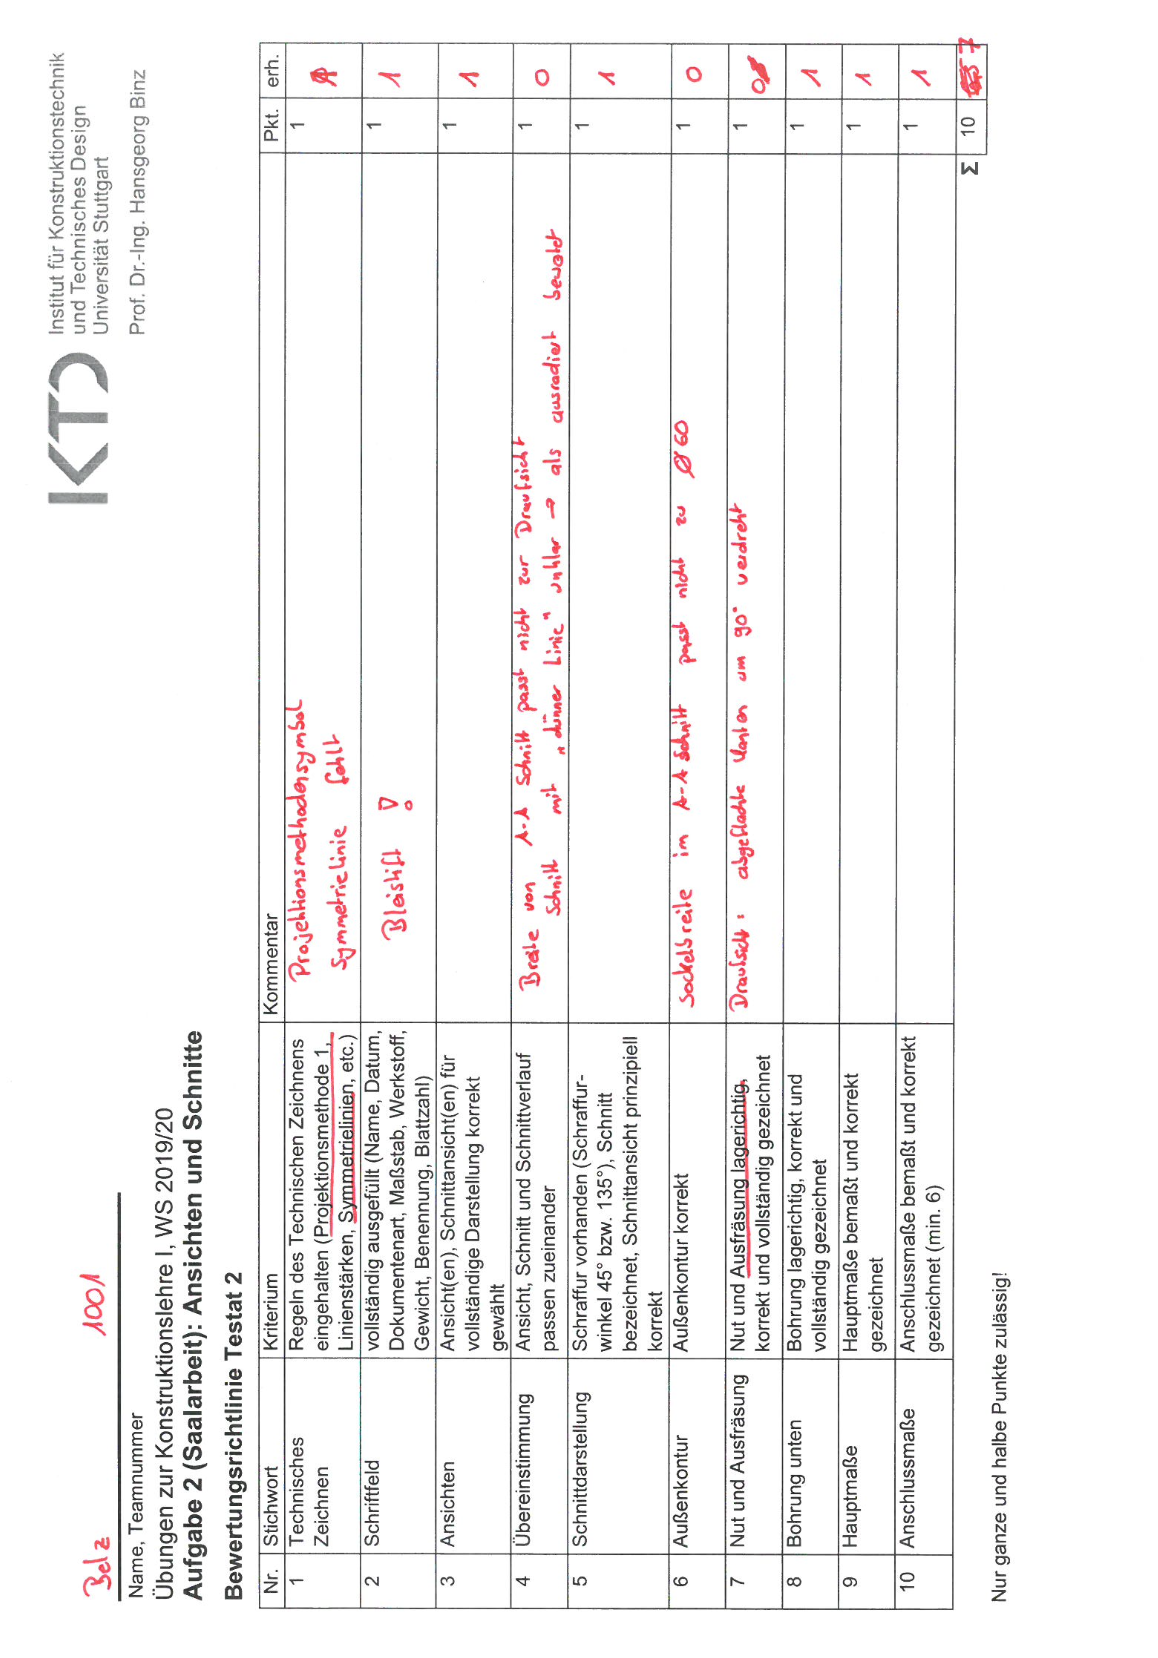 KTD
Institut für Konstruktionstechnik
und Technisches Design
Universität Stuttgart
Prof. Dr.-Ing. Hansgeorg Binz
Belz 1001
Name, Teamnummer
Übungen zur Konstruktionslehre I, WS 2019/20
Aufgabe 2 (Saalarbeit): Ansichten und Schnitte
Bewertungsrichtlinie Testat 2
Nr. Stichwort Kriterium Kommentar Pkt. erh.
1 Technisches Zeichnen
Regeln des Technischen Zeichnens
eingehalten (Projektionsmethode 1,
Linienstärken, Symmetrielinien, etc.)
Projektionsmethodensymbol
Symmetrielinie fehlt
1
2 Schriftfeld
vollständig ausgefüllt (Name, Datum,
Dokumentenart, Maßstab, Werkstoff,
Gewicht, Benennung, Blattzahl)
Bleistift !
1 1
3 Ansichten
Ansicht(en), Schnittansicht(en) für
vollständige Darstellung korrekt
gewählt
1 1
4 Übereinstimmung
Ansicht, Schnitt und Schnittverlauf
passen zueinander
Breite von A-A Schnitt passt nicht zur Draufsicht
Schnitt mit „dünner Linie" unklar → als ausradiert bewertet
1 0
5 Schnittdarstellung
Schraffur vorhanden (Schraffur-
winkel 45° bzw. 135°), Schnitt
bezeichnet, Schnittansicht prinzipiell
korrekt
1 1
6 Außenkontur
Außenkontur korrekt
Sockelbreite im A-A Schnitt passt nicht zu Ø60
1 0
7 Nut und Ausfräsung
Nut und Ausfräsung lagerichtig,
korrekt und vollständig gezeichnet
Draufsicht: abgeflachte Kanten um 90° verdreht
1 0
8 Bohrung unten
Bohrung lagerichtig, korrekt und
vollständig gezeichnet
1 1
9 Hauptmaße
Hauptmaße bemaßt und korrekt
gezeichnet
1 1
10 Anschlussmaße
Anschlussmaße bemaßt und korrekt
gezeichnet (min. 6)
1 1
Σ 10 7
Nur ganze und halbe Punkte zulässig!